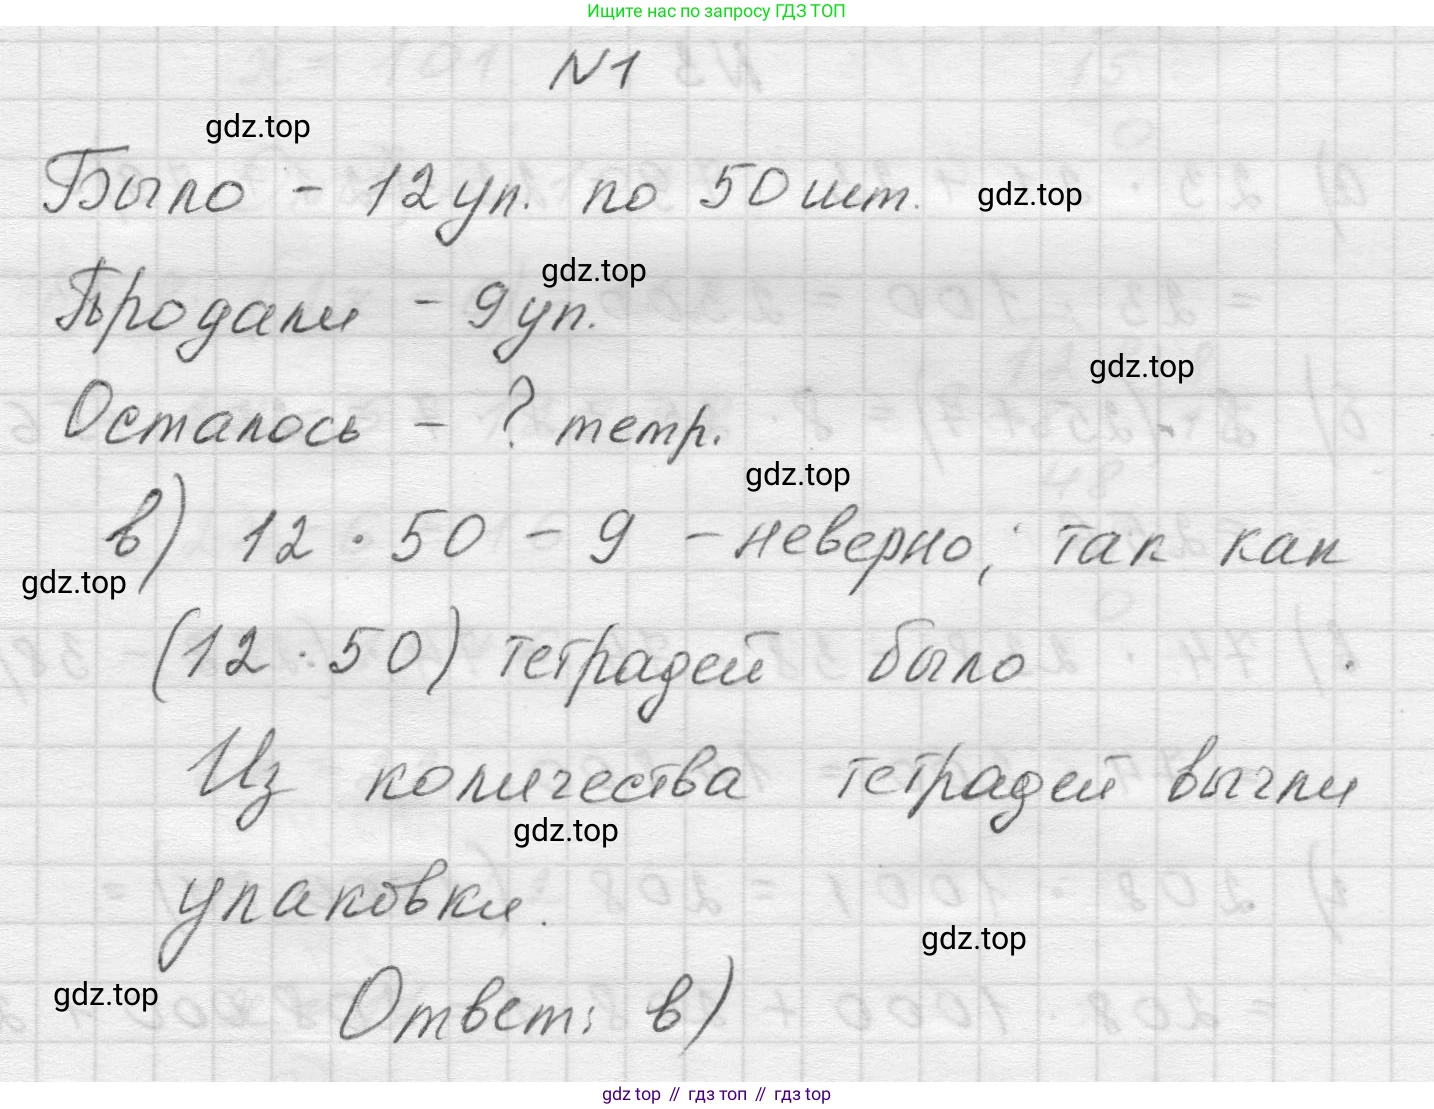 Ищите нас по запросу ГДЗ ТОП
N1
gdz.top
Было - 12 уп. по 50 шт.
gdz.top
gdz.top
Продали - 9 уп.
gdz.top
Осталось - ? тетр.
gdz.top
в) 12 · 50 - 9 - неверно, так как
gdz.top
(12 · 50) тетрадей было
Из количества тетрадей вычли
gdz.top
упаковки.
gdz.top
gdz.top
Ответ: в)
gdz top // гдз топ // гдз top